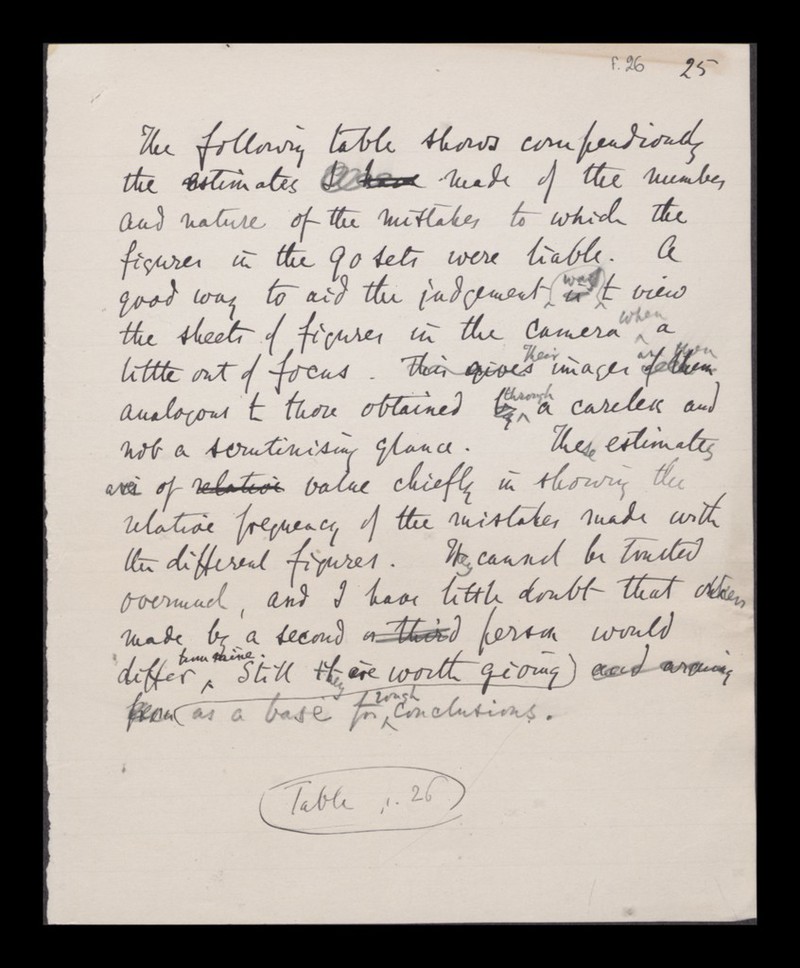 f. 26 25
The following table shows compendiously
the estimates I have made of the number
and nature of the mistakes to which the
figures in the 90 sets were liable. A
good way to aid the judgement was is to view
the sheets of figures in the camera when a
little out of focus. This gives Their images of them are then
analogous to those obtained by through a careless and
not a scrutinising glance. These estimates
are of relative value chiefly in showing the
relative frequency of the mistakes made with
the different figures. They cannot be trusted
overmuch, and I have little doubt that others
made by a second or third person would
differ from mine. Still they are worth giving and arming
from as a base for rough conclusions.
Table p. 26